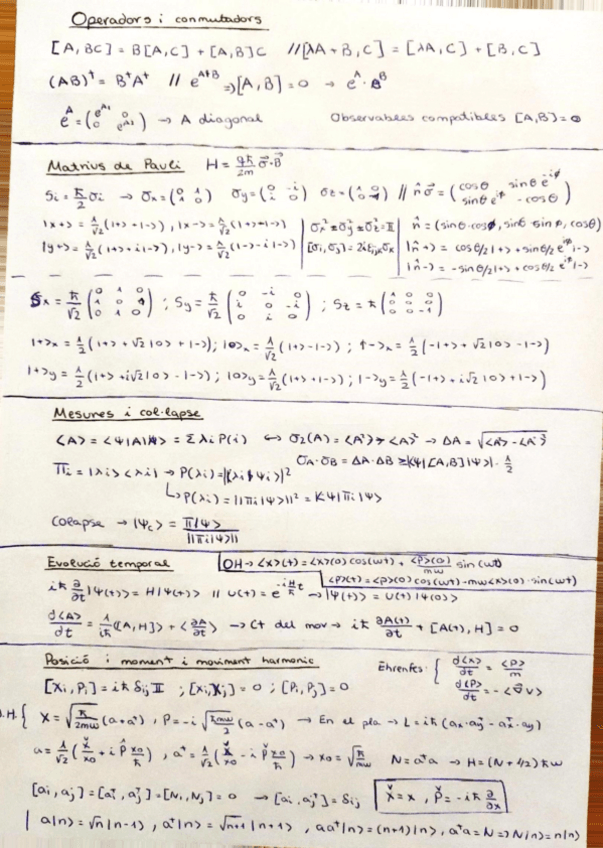 Operadors i conmutadors
[A, BC] = B[A,C] + [A,B]C // [λA + B, C] = [λA, C] + [B, C]
(AB)† = B†A† // e^{A+B} => [A, B] = 0 → e^A · e^B
e^A = (e^{A1} 0; 0 e^{A2}) → A diagonal Observables compatibles [A,B] = 0
Matrius de Pauli H = qħ/2m σ⃗·B⃗
Si = ħ/2 σi → σx = (0 1; 1 0) σy = (0 -i; i 0) σz = (1 0; 0 -1) // n̂σ⃗ = (cosθ sinθ e^{-iφ}; sinθ e^{iφ} -cosθ)
|x+> = 1/√2 (|+> + |->), |x-> = 1/√2 (|+> - |->) | σx² = σy² = σz² = 𝕀 | n̂ = (sinθ·cosφ, sinθ sinφ, cosθ)
|y+> = 1/√2 (|+> + i|->), |y-> = 1/√2 (|+> - i|->) | [σi, σj] = 2iεijk σk | |n̂+> = cosθ/2 |+> + sinθ/2 e^{iφ} |->
|n̂-> = -sinθ/2 |+> + cosθ/2 e^{iφ} |->
Sx = ħ/√2 (0 1 0; 1 0 1; 0 1 0) ; Sy = ħ/√2 (0 -i 0; i 0 -i; 0 i 0) ; Sz = ħ (1 0 0; 0 0 0; 0 0 -1)
|+>x = 1/2 (|+> + √2 |0> + |->); |0>x = 1/√2 (|+> - |->) ; |->x = 1/2 (-|+> + √2 |0> - |->)
|+>y = 1/2 (|+> + i√2 |0> - |->); |0>y = 1/√2 (|+> + |->) ; |->y = 1/2 (-|+> + i√2 |0> + |->)
Mesures i col·lapse
<A> = <Ψ|A|Ψ> = Σ λi P(i) ↔ σ2(A) = <A²> - <A>² → ΔA = √(<A²> - <A>²)
σA·σB = ΔA·ΔB ≥ |<Ψ|[A,B]|Ψ>| · 1/2
Πi = |λi><λi| → P(λi) = |<λi|Ψi>|²
↳ P(λi) = ||Πi|Ψ>||² = |<Ψ|Πi|Ψ>
Colapse → |Ψc> = Π|Ψ> / ||Πi|Ψ>||
Evolució temporal OH → <x>(t) = <x>(0) cos(ωt) + <p>(0)/mω sin(ωt)
<p>(t) = <p>(0) cos(ωt) - mω<x>(0)·sin(ωt)
iħ ∂/∂t |Ψ(t)> = H|Ψ(t)> // U(t) = e^{-iH/ħ t} → |Ψ(t)> = U(t)|Ψ(0)>
d<A>/dt = 1/iħ <[A, H]> + <∂A/∂t> → Ct del mov → iħ ∂A(t)/∂t + [A(t), H] = 0
Posició i moment i moviment harmonic Ehrenfes: { d<x>/dt = <p>/m
[Xi, Pj] = iħ δij 𝕀 ; [Xi, Xj] = 0 ; [Pi, Pj] = 0 d<p>/dt = -<∇⃗V>
.H. { X = √(ħ/2mω) (a + a†) , P = -i √(ħmω/2) (a - a†) → En el pla → L = iħ (ax·ay† - ax†·ay)
a = 1/√2 (x̌/x0 + i p̌ x0/ħ) , a† = 1/√2 (x̌/x0 - i p̌ x0/ħ) → x0 = √(ħ/mω) N = a†a → H = (N + 1/2) ħω
[ai, aj] = [ai†, aj†] = [Ni, Nj] = 0 → [ai, aj†] = δij x̌ = x , p̌ = -iħ ∂/∂x
| a|n> = √n |n-1> , a†|n> = √(n+1) |n+1> , aa†|n> = (n+1)|n> , a†a = N => N|n> = n|n>